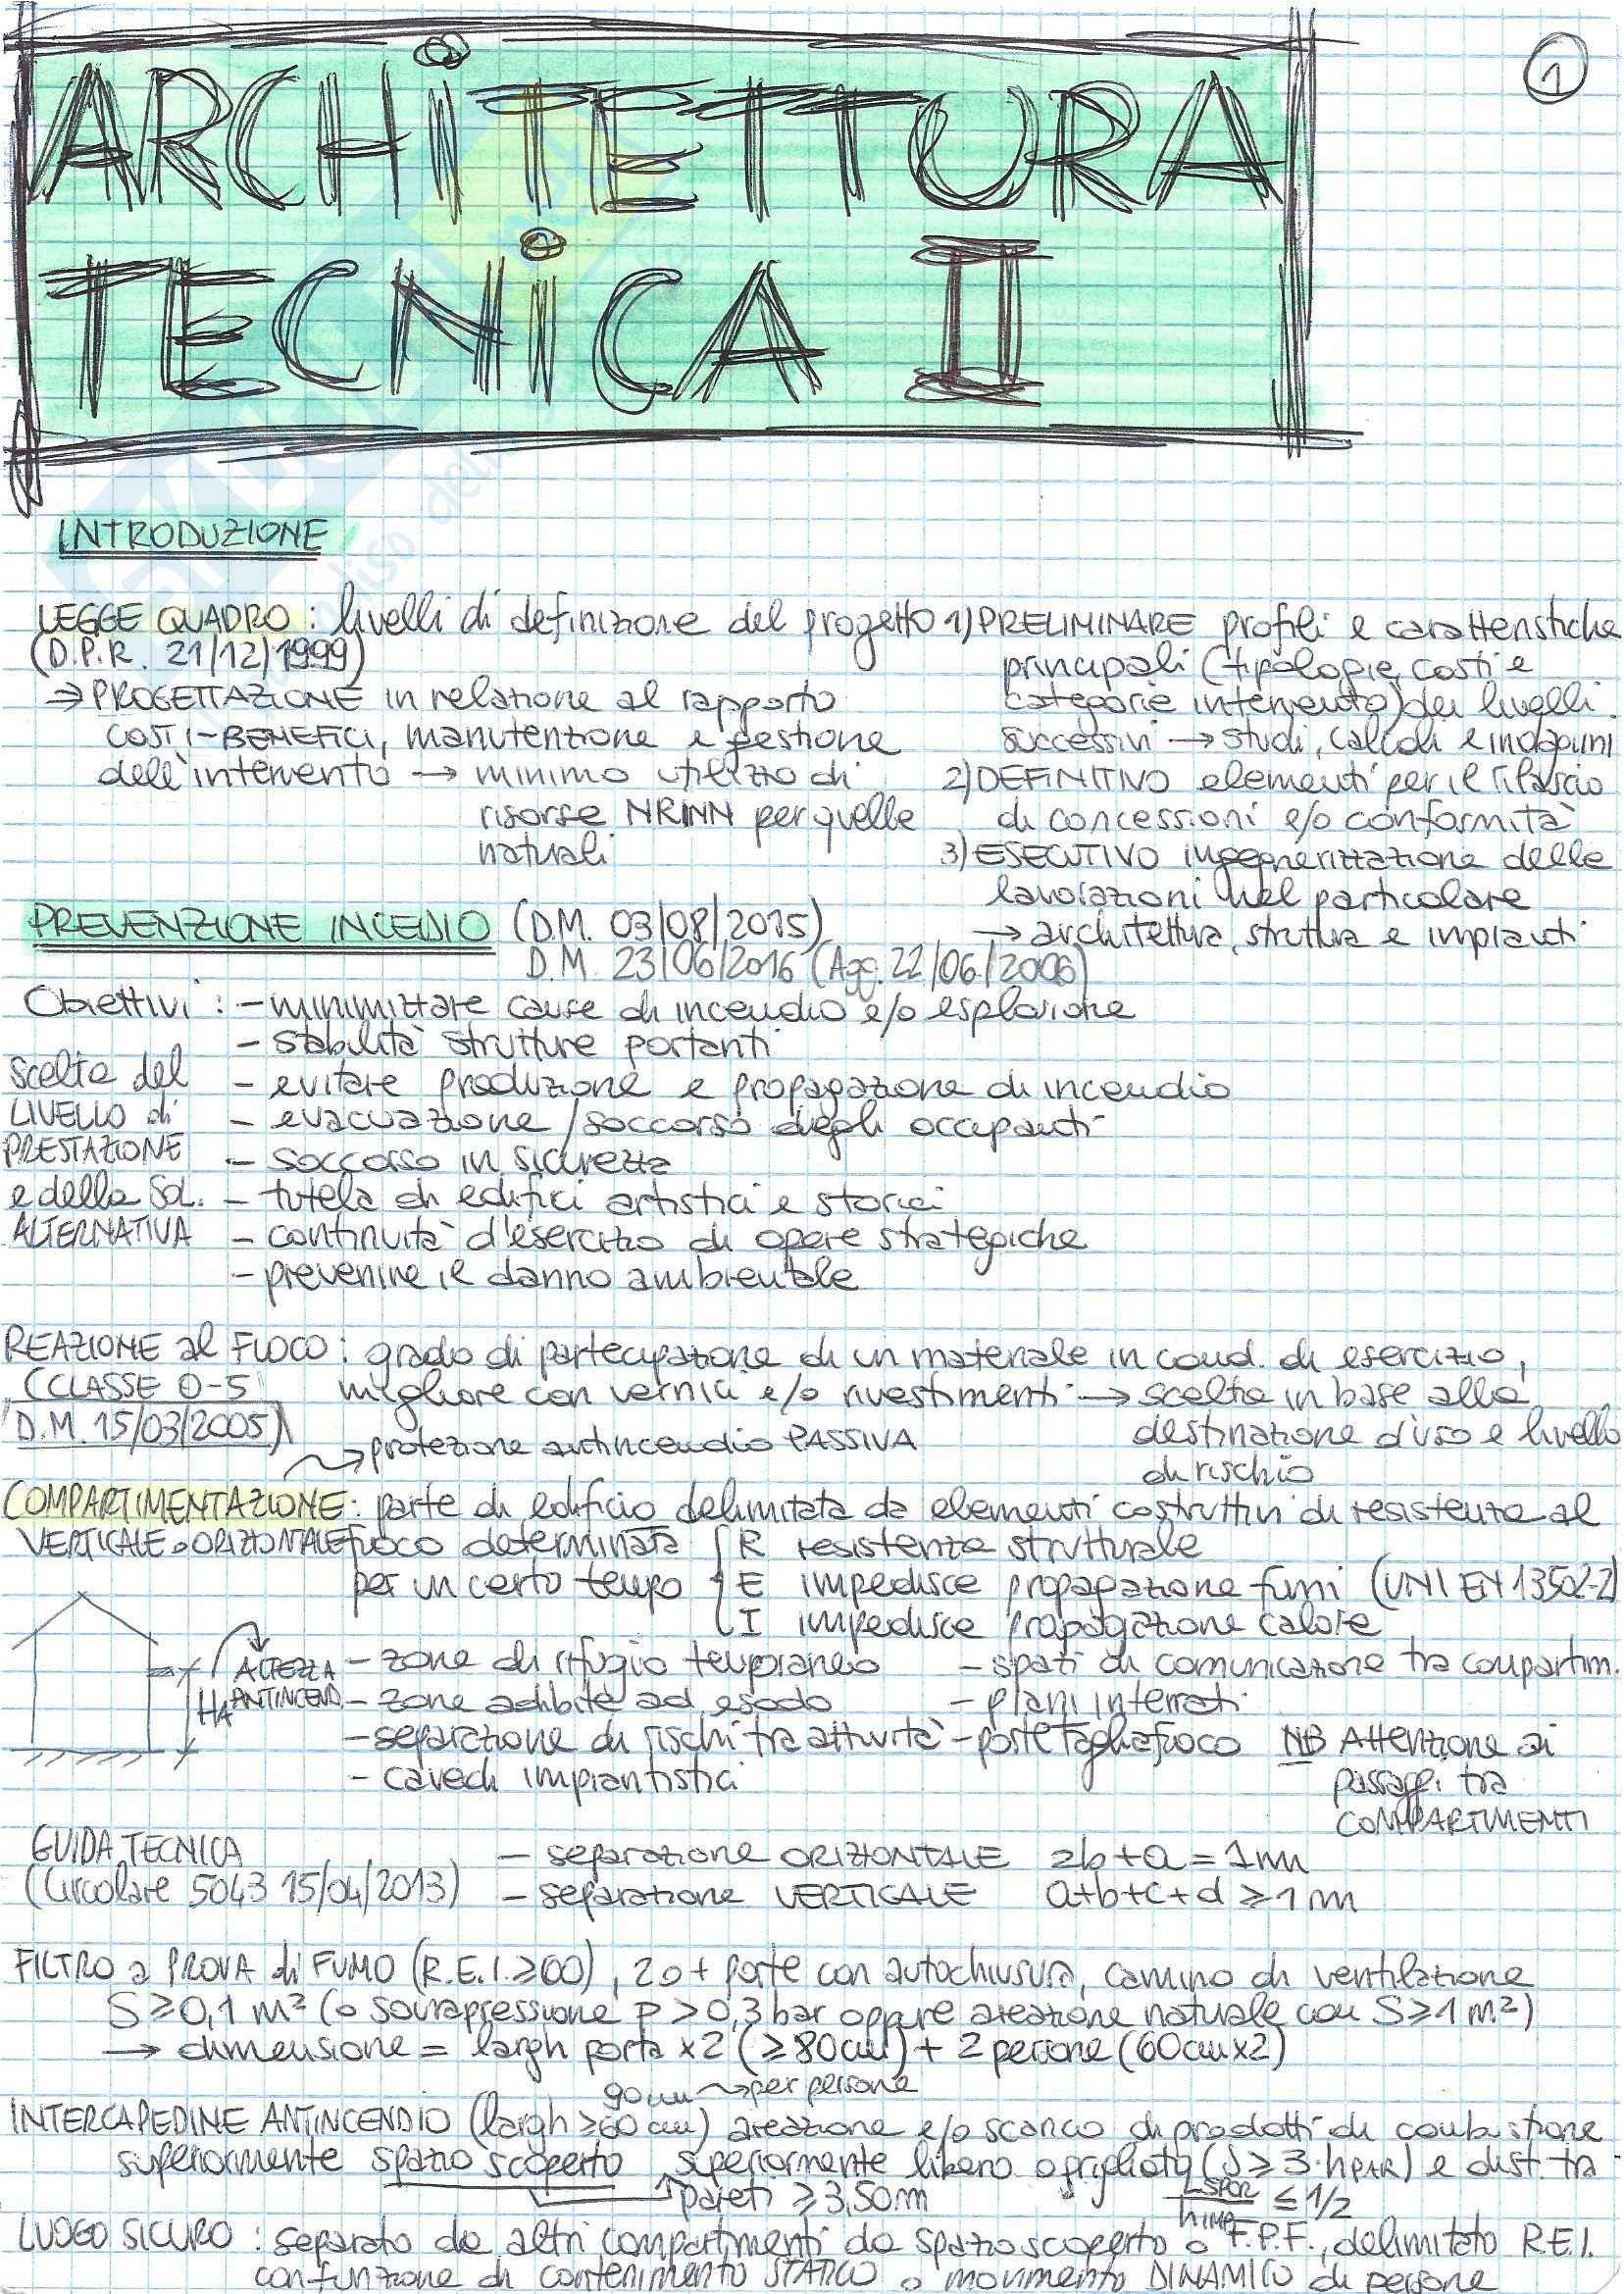 1
ARCHITETTURA
TECNICA II
INTRODUZIONE
LEGGE QUADRO : livelli di definizione del progetto
(D.P.R. 21/12/1999)
→ PROGETTAZIONE in relazione al rapporto
COSTI-BENEFICI, manutenzione e gestione
dell'intervento → minimo utilizzo di
risorse NRINN per quelle
naturali
1) PRELIMINARE profili e caratteristiche
principali (tipologie, costi e
categorie intervento) dei livelli
successivi → studi, calcoli e indagini
2) DEFINITIVO elementi per il rilascio
di concessioni e/o conformità
3) ESECUTIVO ingegnerizzazione delle
lavorazioni nel particolare
→ architettura, struttura e impianti
PREVENZIONE INCEDIO (D.M. 03/08/2015)
D.M. 23/06/2016 (Agg. 22/06/2006)
Obiettivi : - minimizzare cause di incendio e/o esplosione
- stabilità strutture portanti
- evitare produzione e propagazione di incendio
- evacuazione / soccorso degli occupanti
- soccorso in sicurezza
- tutela di edifici artistici e storici
- continuità d'esercizio di opere strategiche
- prevenire il danno ambientale
scelta del
LIVELLO di
PRESTAZIONE
e della SOL.
ALTERNATIVA
REAZIONE al FUOCO : grado di partecipazione di un materiale in cond. di esercizio,
(CLASSE 0-5 migliore con vernici e/o rivestimenti → scelta in base alla
D.M. 15/03/2005) destinazione d'uso e livello
di rischio
→ protezione antincendio PASSIVA
COMPARTIMENTAZIONE : parte di edificio delimitata da elementi costruttivi di resistenza al
VERTICALE o ORIZZONTALE fuoco determinata R resistenza strutturale
per un certo tempo E impedisce propagazione fumi (UNI EN 13502-2)
I impedisce propagazione calore
ALTEZZA
HA ANTINCEND.
- zone di rifugio temporaneo - spazi di comunicazione tra compartim.
- zone adibite ad esodo - piani interrati
- separazione di rischi tra attività - porte tagliafuoco NB Attenzione ai
- cavedi impiantistici passaggi tra
COMPARTIMENTI
GUIDA TECNICA - separazione ORIZZONTALE 2b + a = 1m
(Circolare 5043 15/04/2013) - separazione VERTICALE a+b+c+d ≥ 1 m
FILTRO a PROVA di FUMO (R.E.I. ≥60), 2 o + porte con autochiusura, camino di ventilazione
S ≥ 0,1 m² (o sovrapressione p > 0,3 bar oppure areazione naturale con S ≥ 1 m²)
→ dimensione = largh porta x2 (≥80cm) + 2 persone (60cm x2)
90 cm → per persone
INTERCAPEDINE ANTINCENDIO (largh ≥60 cm) areazione e/o scarico di prodotti di combustione
superiormente spazio scoperto superiormente libero o grigliato (S ≥ 3·hPAR) e dist. tra
pareti ≥ 3,50m LSPOR / hIMP ≤ 1/2
LUOGO SICURO : separato da altri compartimenti da spazio scoperto o F.P.F., delimitato R.E.I.
con funzione di contenimento STATICO o movimento DINAMICO di persone